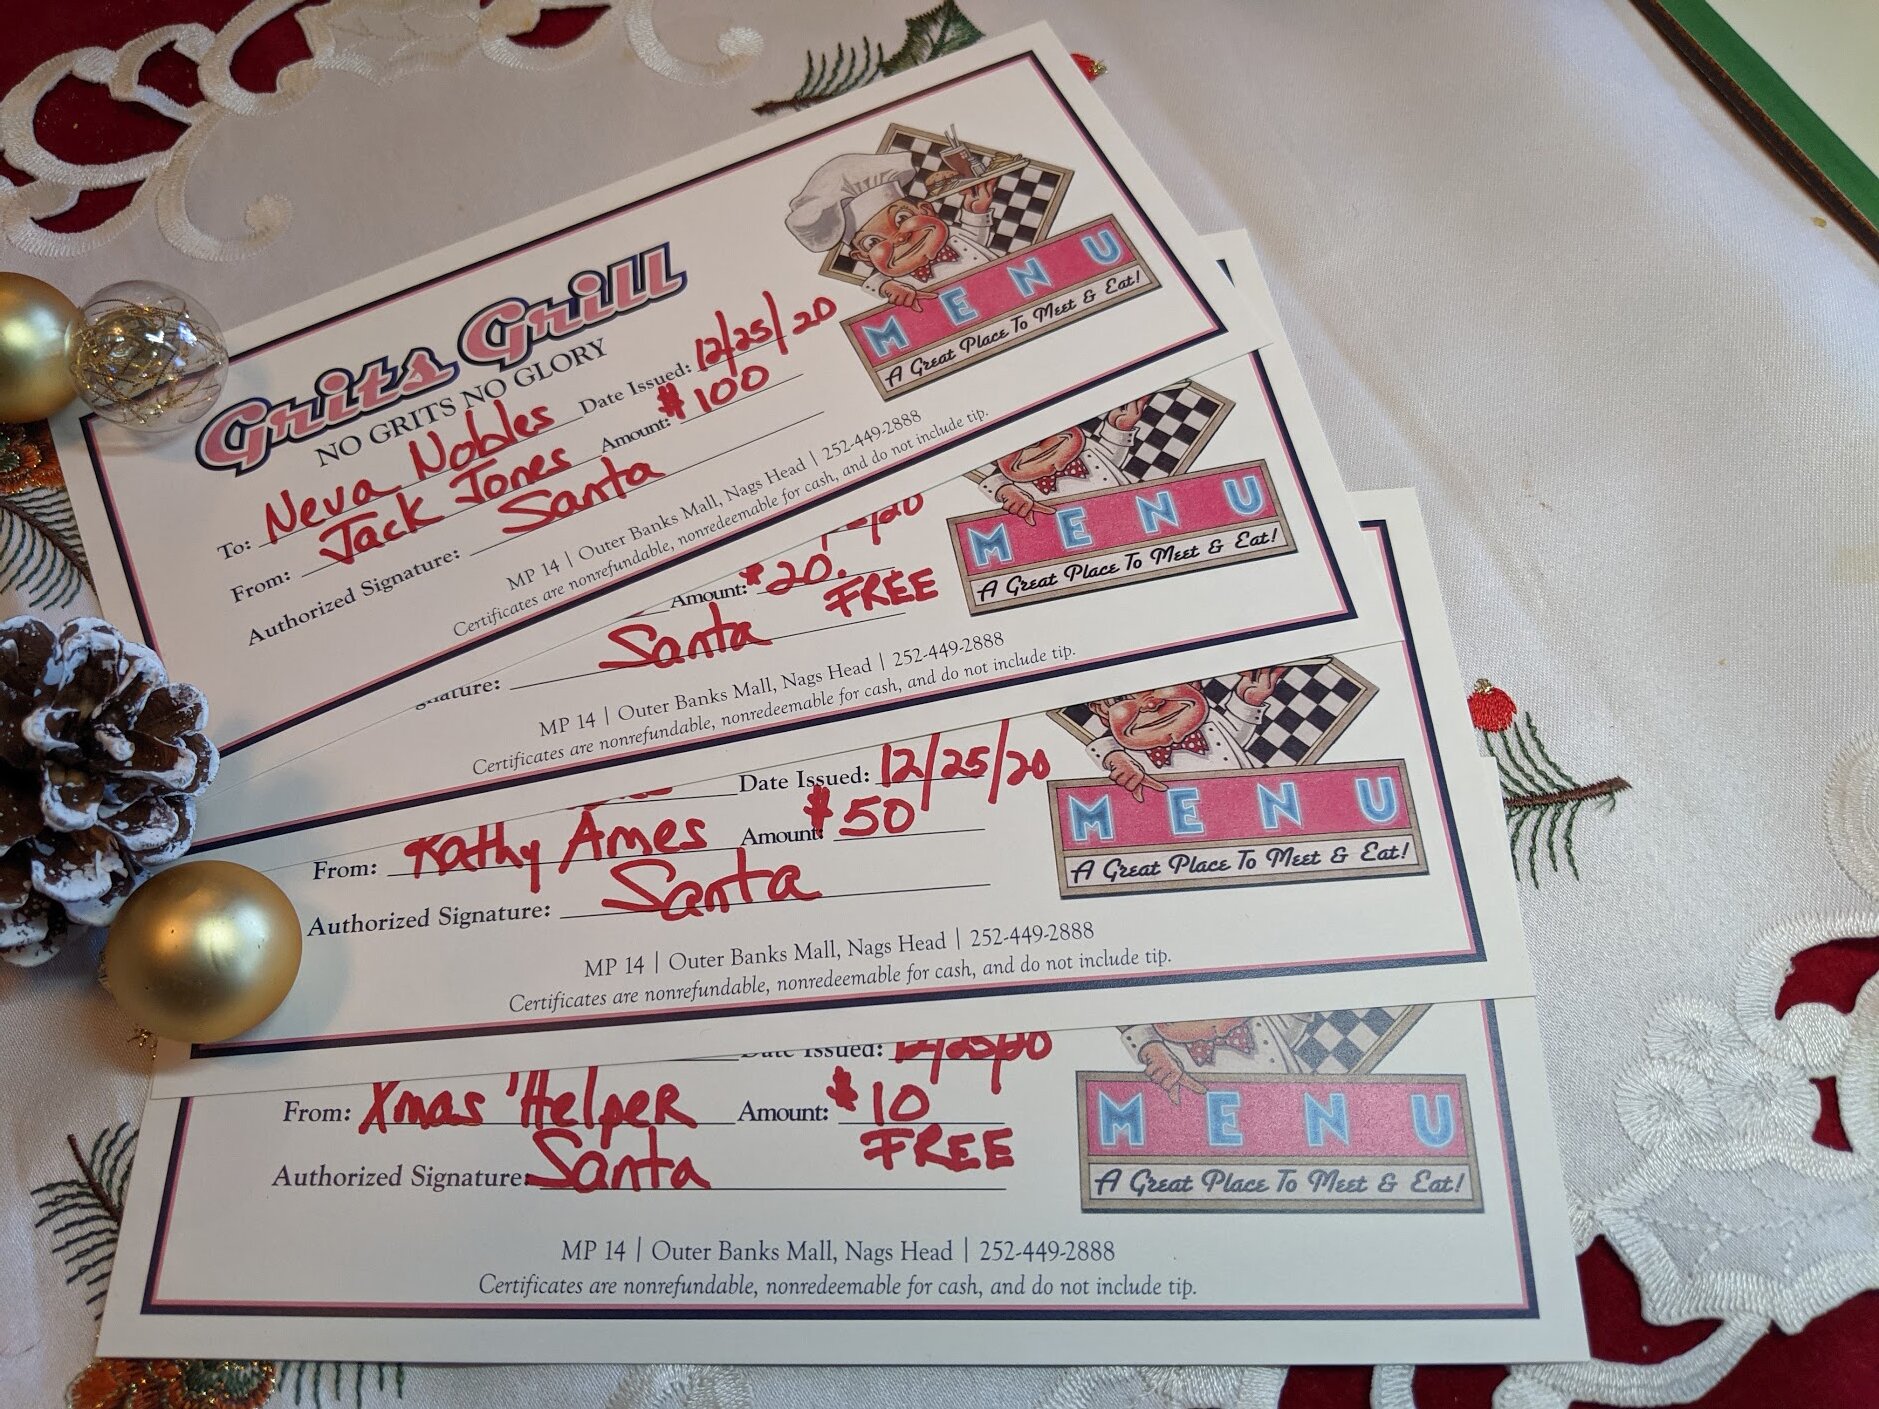 Grits Grill
NO GRITS NO GLORY
To: Neva Nobles Date Issued: 12/25/20
From: Jack Jones Amount: $100
Authorized Signature: Santa
MP 14 | Outer Banks Mall, Nags Head | 252-449-2888
Certificates are nonrefundable, nonredeemable for cash, and do not include tip.
MENU
A Great Place To Meet & Eat!
Amount: $20.
FREE
Santa
MP 14 | Outer Banks Mall, Nags Head | 252-449-2888
Certificates are nonrefundable, nonredeemable for cash, and do not include tip.
MENU
A Great Place To Meet & Eat!
Date Issued: 12/25/20
From: Kathy Ames Amount: $50
Authorized Signature: Santa
MP 14 | Outer Banks Mall, Nags Head | 252-449-2888
Certificates are nonrefundable, nonredeemable for cash, and do not include tip.
MENU
A Great Place To Meet & Eat!
Date Issued: 12/25/20
From: Xmas Helper Amount: $10
FREE
Authorized Signature: Santa
MP 14 | Outer Banks Mall, Nags Head | 252-449-2888
Certificates are nonrefundable, nonredeemable for cash, and do not include tip.
MENU
A Great Place To Meet & Eat!